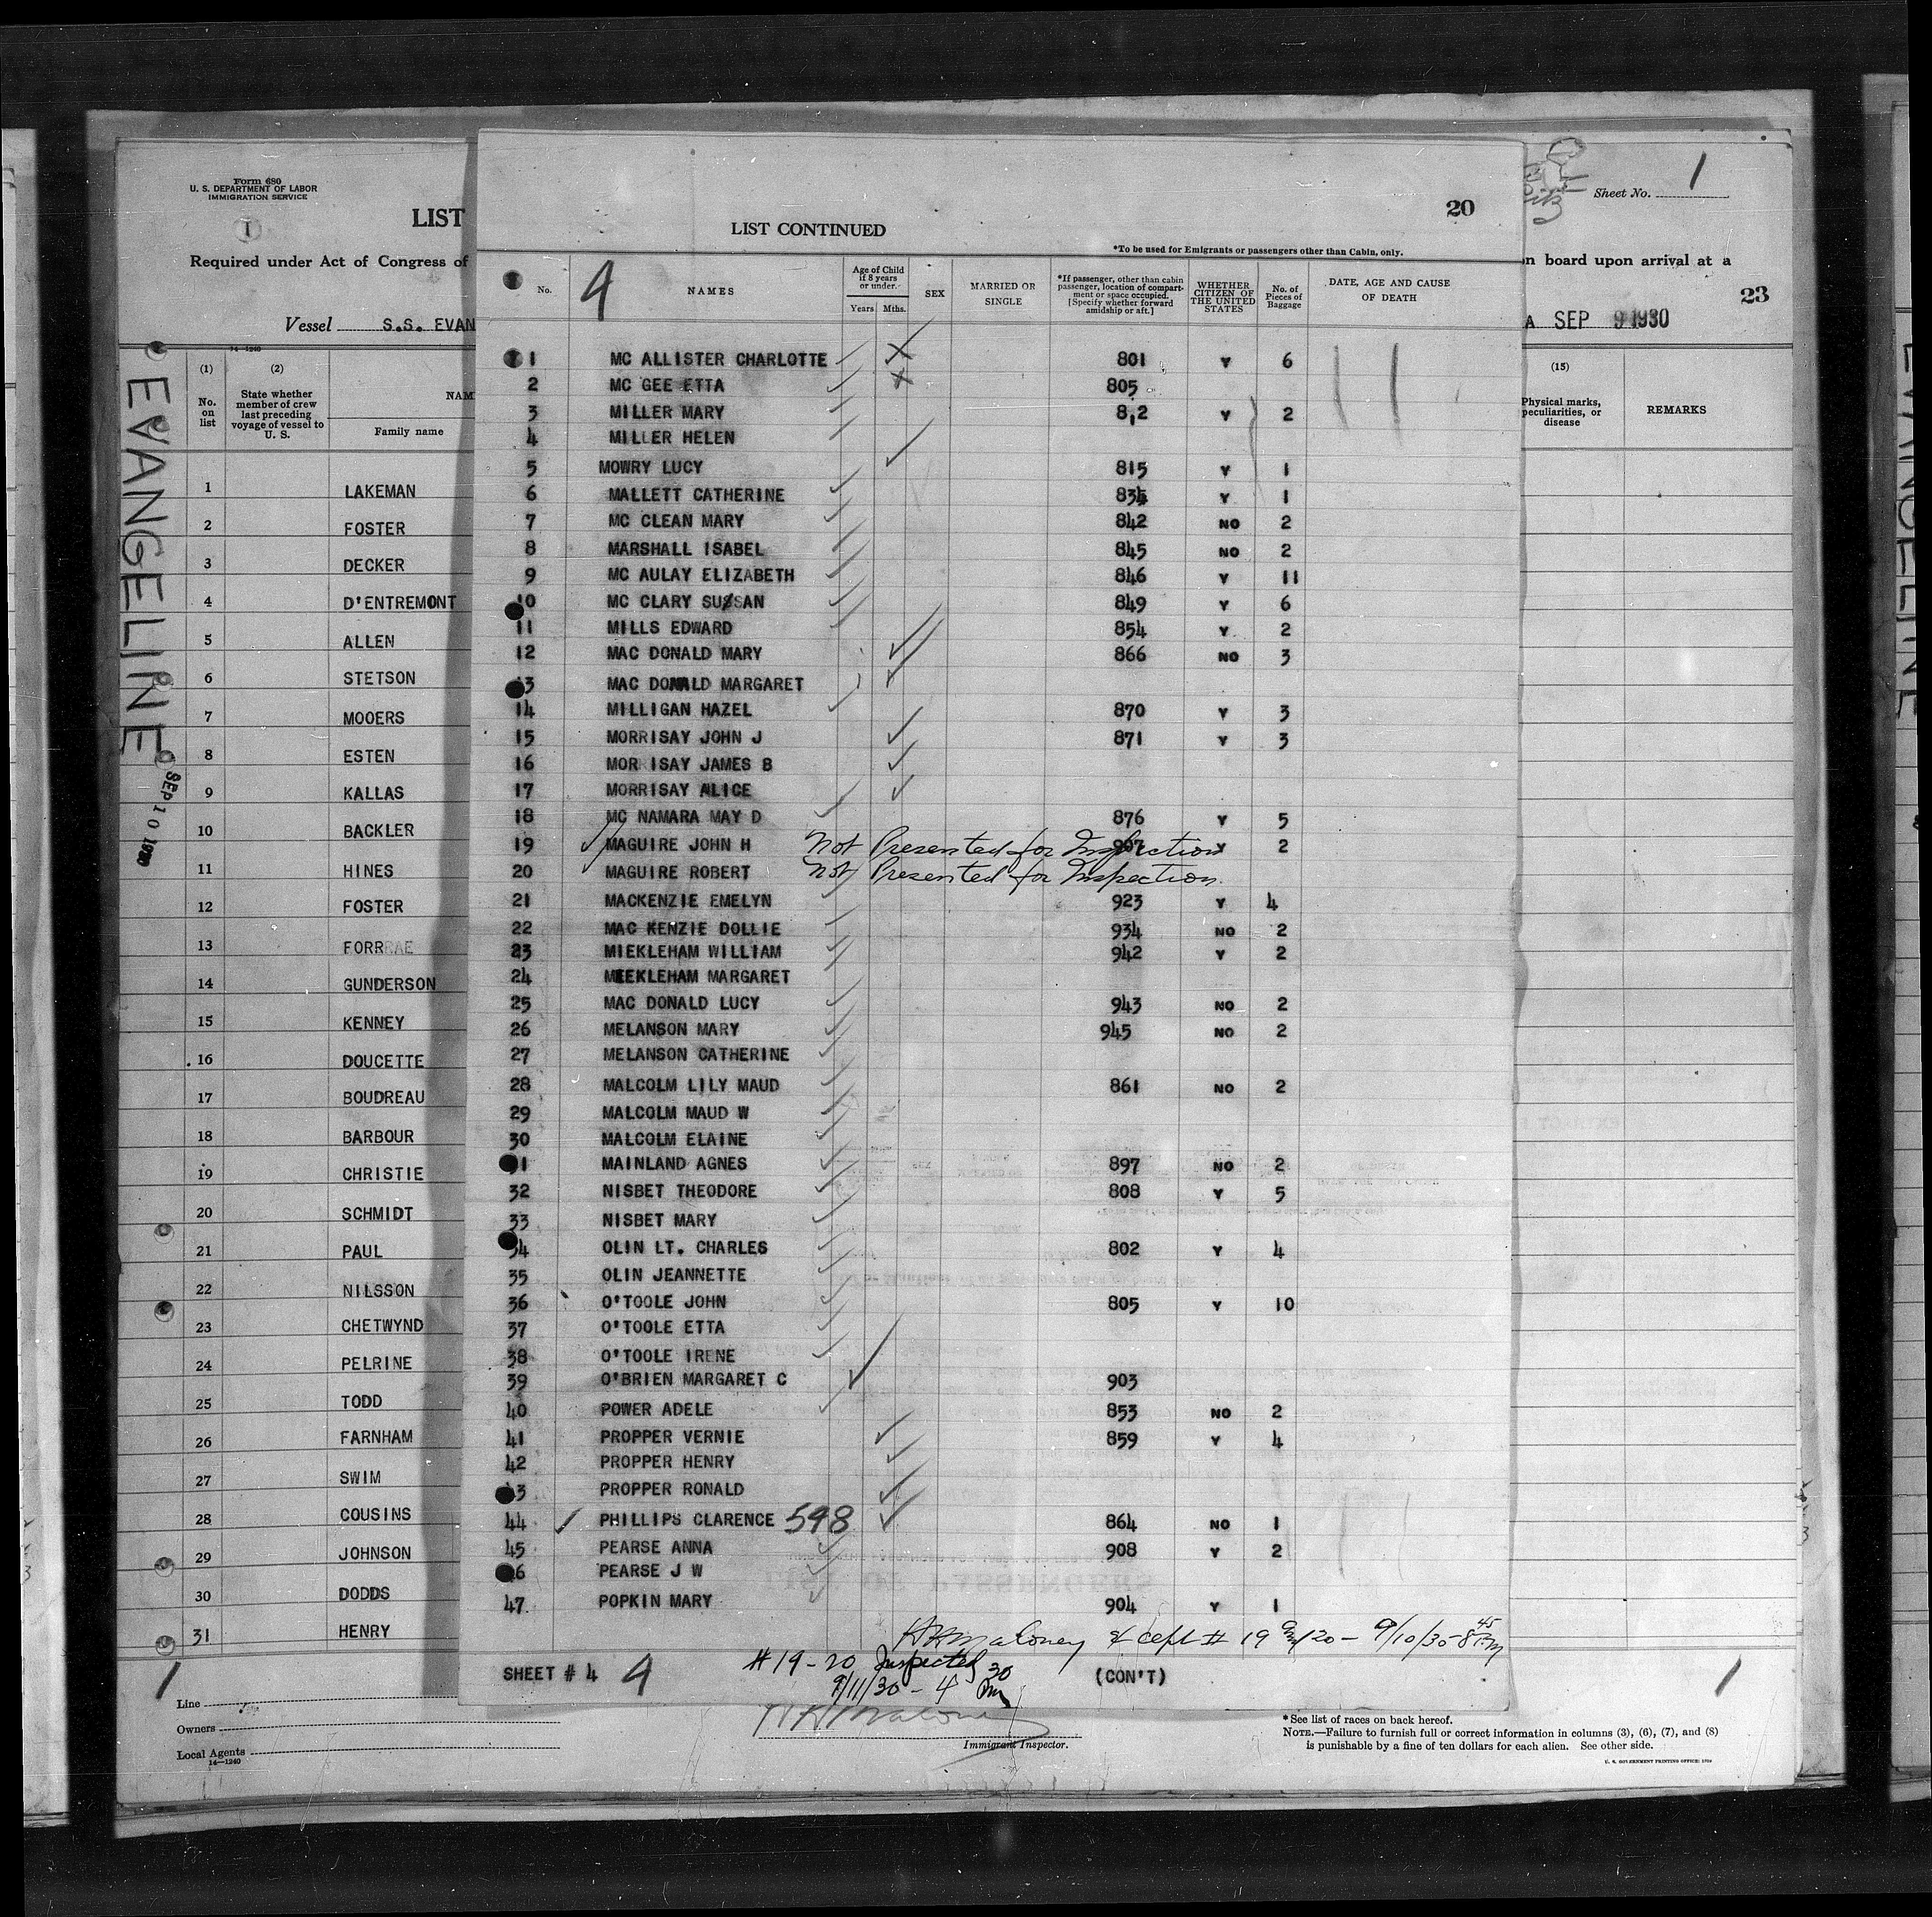 Form 680
U. S. DEPARTMENT OF LABOR
IMMIGRATION SERVICE
I
LIST
Required under Act of Congress of
Vessel S.S. EVAN
14-1240
(1) (2)
No. on list
State whether member of crew last preceding voyage of vessel to U. S.
NAM
Family name
EVANGELINE
SEP 10 1930
1 LAKEMAN
2 FOSTER
3 DECKER
4 D'ENTREMONT
5 ALLEN
6 STETSON
7 MOOERS
8 ESTEN
9 KALLAS
10 BACKLER
11 HINES
12 FOSTER
13 FORRRAE
14 GUNDERSON
15 KENNEY
16 DOUCETTE
17 BOUDREAU
18 BARBOUR
19 CHRISTIE
20 SCHMIDT
21 PAUL
22 NILSSON
23 CHETWYND
24 PELRINE
25 TODD
26 FARNHAM
27 SWIM
28 COUSINS
29 JOHNSON
30 DODDS
31 HENRY
1
Line
Owners
Local Agents
14-1240
20
LIST CONTINUED
*To be used for Emigrants or passengers other than Cabin, only.
4
No.
NAMES
Age of Child if 8 years or under.
Years Mths.
SEX
MARRIED OR SINGLE
*If passenger, other than cabin passenger, location of compartment or space occupied. [Specify whether forward amidship or aft.]
WHETHER CITIZEN OF THE UNITED STATES
No. of Pieces of Baggage
DATE, AGE AND CAUSE OF DEATH
1 MC ALLISTER CHARLOTTE 801 Y 6
2 MC GEE ETTA 805
3 MILLER MARY 812 Y 2
4 MILLER HELEN
5 MOWRY LUCY 815 Y 1
6 MALLETT CATHERINE 834 Y 1
7 MC CLEAN MARY 842 NO 2
8 MARSHALL ISABEL 845 NO 2
9 MC AULAY ELIZABETH 846 Y 11
10 MC CLARY SUSSAN 849 Y 6
11 MILLS EDWARD 854 Y 2
12 MAC DONALD MARY 866 NO 3
13 MAC DONALD MARGARET
14 MILLIGAN HAZEL 870 Y 3
15 MORRISAY JOHN J 871 Y 3
16 MOR ISAY JAMES B
17 MORRISAY ALICE
18 MC NAMARA MAY D 876 Y 5
19 MAGUIRE JOHN H Not Presented for Inspection 907 Y 2
20 MAGUIRE ROBERT Not Presented for Inspection
21 MACKENZIE EMELYN 923 Y 4
22 MAC KENZIE DOLLIE 934 NO 2
23 MIEKLEHAM WILLIAM 942 Y 2
24 MEEKLEHAM MARGARET
25 MAC DONALD LUCY 943 NO 2
26 MELANSON MARY 945 NO 2
27 MELANSON CATHERINE
28 MALCOLM LILY MAUD 861 NO 2
29 MALCOLM MAUD W
30 MALCOLM ELAINE
31 MAINLAND AGNES 897 NO 2
32 NISBET THEODORE 808 Y 5
33 NISBET MARY
34 OLIN LT. CHARLES 802 Y 4
35 OLIN JEANNETTE
36 O'TOOLE JOHN 805 Y 10
37 O'TOOLE ETTA
38 O'TOOLE IRENE
39 O'BRIEN MARGARET C 903
40 POWER ADELE 853 NO 2
41 PROPPER VERNIE 859 Y 4
42 PROPPER HENRY
43 PROPPER RONALD
44 PHILLIPS CLARENCE 598 864 NO 1
45 PEARSE ANNA 908 Y 2
46 PEARSE J W
47 POPKIN MARY 904 Y 1
Maloney Except # 19 and 20 - 9/10/30 - 8 45 PM
SHEET # 4 4
# 19-20 Inspected
9/11/30 - 4 30 Pm
(CON'T)
Maloney
Immigrant Inspector.
Sheet No. 1
n board upon arrival at a
23
A SEP 9 1930
(15)
Physical marks, peculiarities, or disease
REMARKS
1
* See list of races on back hereof.
NOTE.—Failure to furnish full or correct information in columns (3), (6), (7), and (8)
is punishable by a fine of ten dollars for each alien. See other side.
U. S. GOVERNMENT PRINTING OFFICE
EVANGELINE